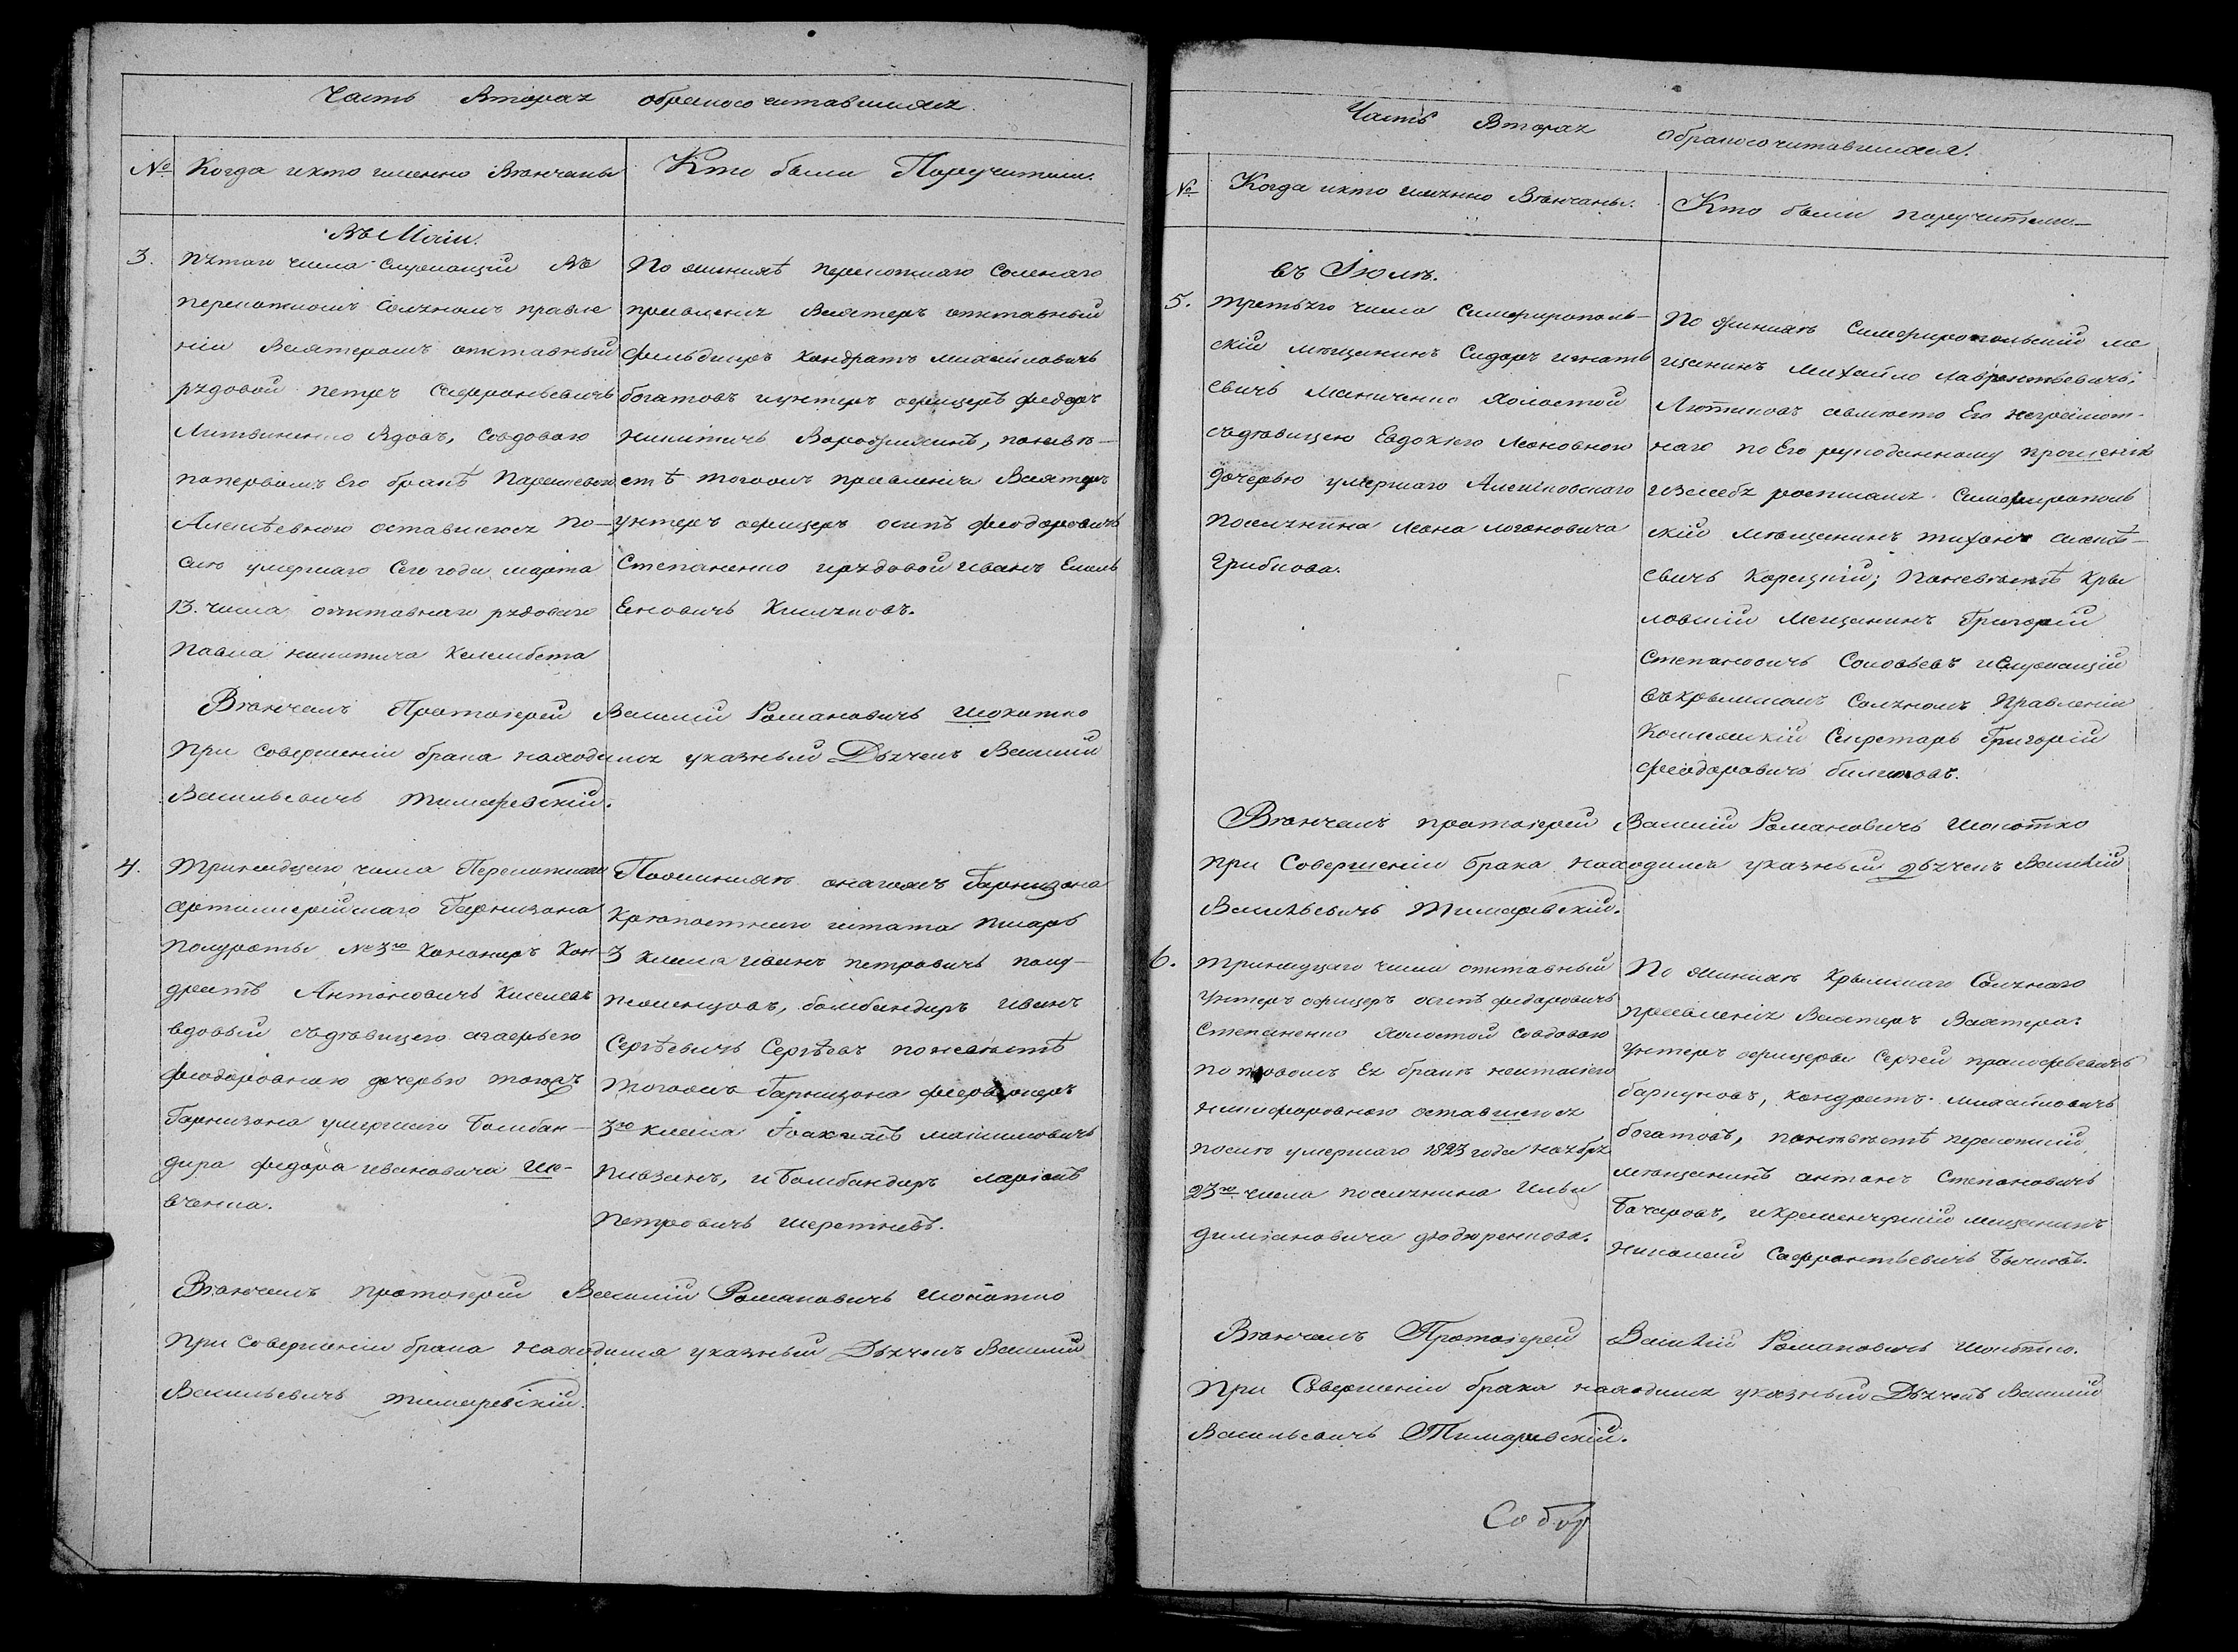 Часть Вторая обракосочитавшихся
№ Когда икто именно Вѣнчаны Кто были Поручители.
Въ Маіи.
3. пятаго числа служащій въ
перекопскомъ Соляномъ правле
ніи Вахтеромъ отставный
рядовой петръ Сафроньевичъ
Литвиненко Вдовъ, Совдовою
поперьвомъ Его бракѣ Параскевою
Алексѣевною оставшеюся по-
слѣ умершаго Сего года марта
13. числа отставнаго рядоваго
Павла никитича Келембета
По женихѣ перекопскаго Соленаго
правленія Вахтеръ отставный
фельдшеръ Кондратъ михайловичь
богатовъ иунтеръ офицеръ федоръ
никитичь, поневѣ-
стѣ тогожъ правленія Вахтеръ
унтеръ офицеръ осипъ феодоровичъ
Степаненко ирядовой иванъ Емель
Еновичь Кисляковъ.
Вѣнчалъ Протоіерей Василій Романовичь Шокотко
При совершеніи брака находился указный Дьячекъ Василій
Васильевичъ тимофевскій.
4. Тринадцаго числа Перекопскаго
артиллерійскаго Гарнизона
Полуроты №3го Канониръ Кон-
дратъ Антоновичь Киселевъ
вдовый сьдѣвицею агафьею
феодоровною дочерью тогожъ
Гарнизона умершаго Бомбан-
дира федора ивановича Ше-
вченка.
Поженихѣ онагожъ Гарнизона
Крѣпостнаго штата писарь
3 класа иванъ петровичь полу-
бомбандиръ иванъ
Сергѣевичь Сергѣевъ поневѣстѣ
тогожъ Гарнизона феерверкеръ
3го класа Іоакимъ максимовичь
пивзанъ, и Бомбандиръ ларіонъ
Петровичь шереткевъ.
Вѣнчалъ протоіерей Василій Романовичь Шокотко
При совершеніи брака находился указный Дьячекъ Василій
Васильевичъ тимофевскій.
Часть Вторая Обракосочитавшихся.
№ Когда икто именно Вѣнчаны. Кто были поручители
въ Іюлѣ.
5. третьяго числа Симферополь-
скій мѣщанинъ Сидоръ игнать
евичъ Маниченко Холостой
съдѣвицею Евдокіею Леоновною
дочерью умершаго Алешковскаго
поселянина Леона логоновича
Грибкова.
По женихѣ Симферопольскій ме
щанинъ Михайло лаврентьевичь
Лютиковъ авмѣсто Его неграмот-
наго по Его рукоданному прошенію
изасебя росписался Симферополь
скій мѣщанинъ тихонъ алексѣ-
евичь Корецкій; поневѣстѣ Кры
ловскій Мещанинъ Григорій
Степановичь Соловьевъ иСлужащій
въкрымскомъ Соляномъ Правленіи
Колежскій Секретарь Григорій
феодоровичъ билетовъ.
Вѣнчалъ протоіерей Василій Романовичь Шокотко
при Совершеніи брака находился указный дьячекъ Василій
Васильевичь Тимофевскій.
6. тринадцаго числа отставный
Унтеръ офицеръ осипъ федоровичь
Степаненко холостой Совдовою
по Ея бракѣ наталіею
никифоровною оставшеюся
послѣ умершаго 1823 года ноября
23го числа поселянина Ильи
диміановича
По женихѣ Крымскаго Солянаго
правленія Вахтеръ Вахтера:
Унтеръ офицеры Сергей прокофьевичь
баркуновъ, кондратъ михайловичь
богатовъ, поневѣстѣ перекопскій
мѣщанинъ антонъ Степановичь
Бочаровъ, икременчуцкій мещанинъ
николай Сафронтьевичь Бычковъ.
Вѣнчалъ Протоіерей Василій Романовичь Шокотко.
При Совершеніи брака находился указный Дьячекъ Василій
Васильевичь Тимофевскій.
Собор